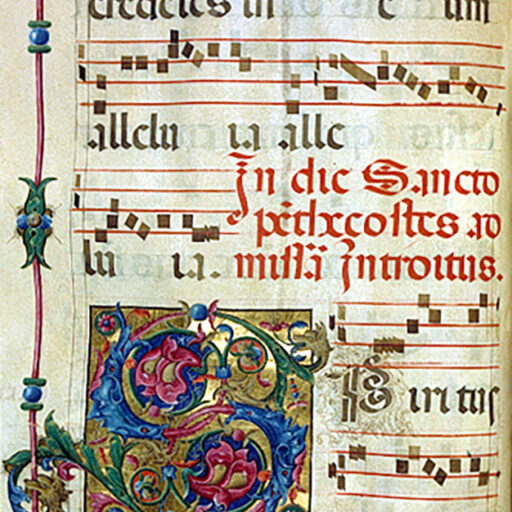 in e um
allelu ia alle
In die Sancto
pēthecostes ad
lu ia. missā Introitus.
iri tus